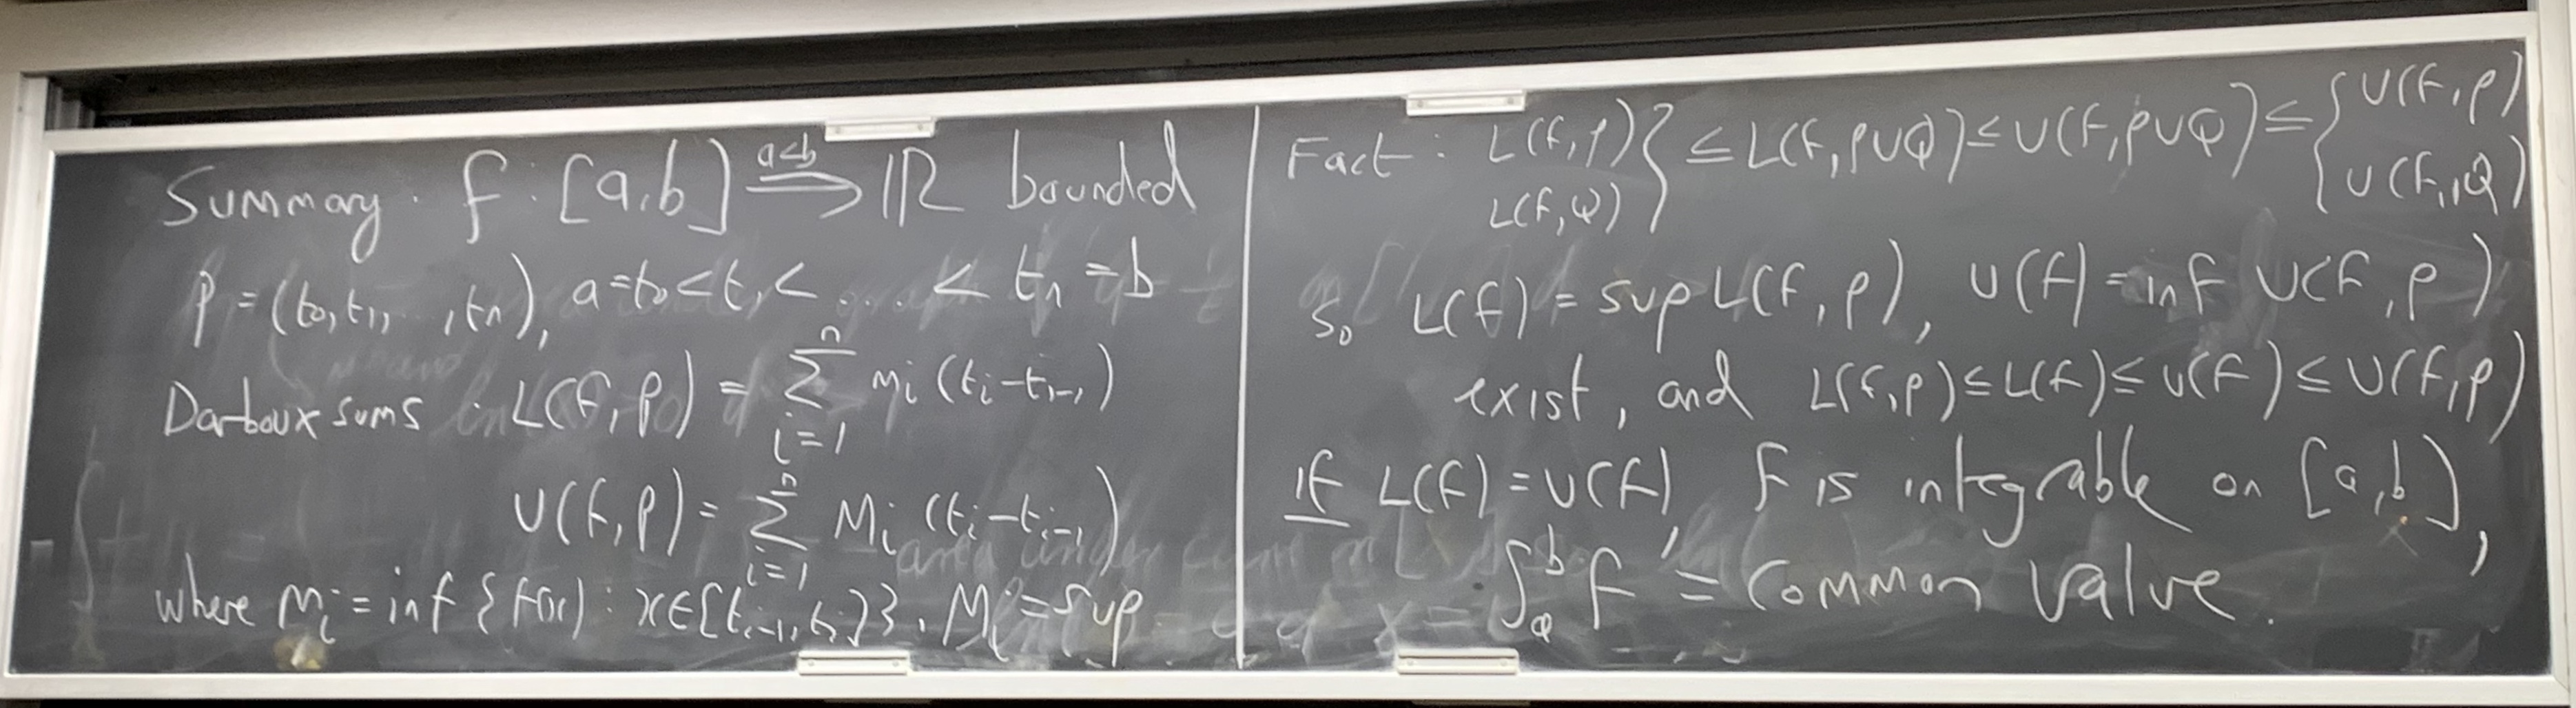 Summary. f : [a,b] ⟶ ℝ bounded
a<b
P = (t₀, t₁, ..., tₙ), a = t₀ < t₁ < .... < tₙ = b
Darboux sums : L(f, P) = ∑ᵢ₌₁ⁿ mᵢ (tᵢ - tᵢ₋₁)
U(f, P) = ∑ᵢ₌₁ⁿ Mᵢ (tᵢ - tᵢ₋₁)
where mᵢ = inf {f(x) : x∈[tᵢ₋₁, tᵢ]}, Mᵢ = sup
Fact : L(f, P) L(f, Q) } ≤ L(f, P∪Q) ≤ U(f, P∪Q) ≤ { U(f, P) U(f, Q)
So L(f) = sup L(f, P), U(f) = inf U(f, P)
exist, and L(f, P) ≤ L(f) ≤ U(f) ≤ U(f, P)
If L(f) = U(f), f is integrable on [a, b],
∫ₐᵇ f = common value.